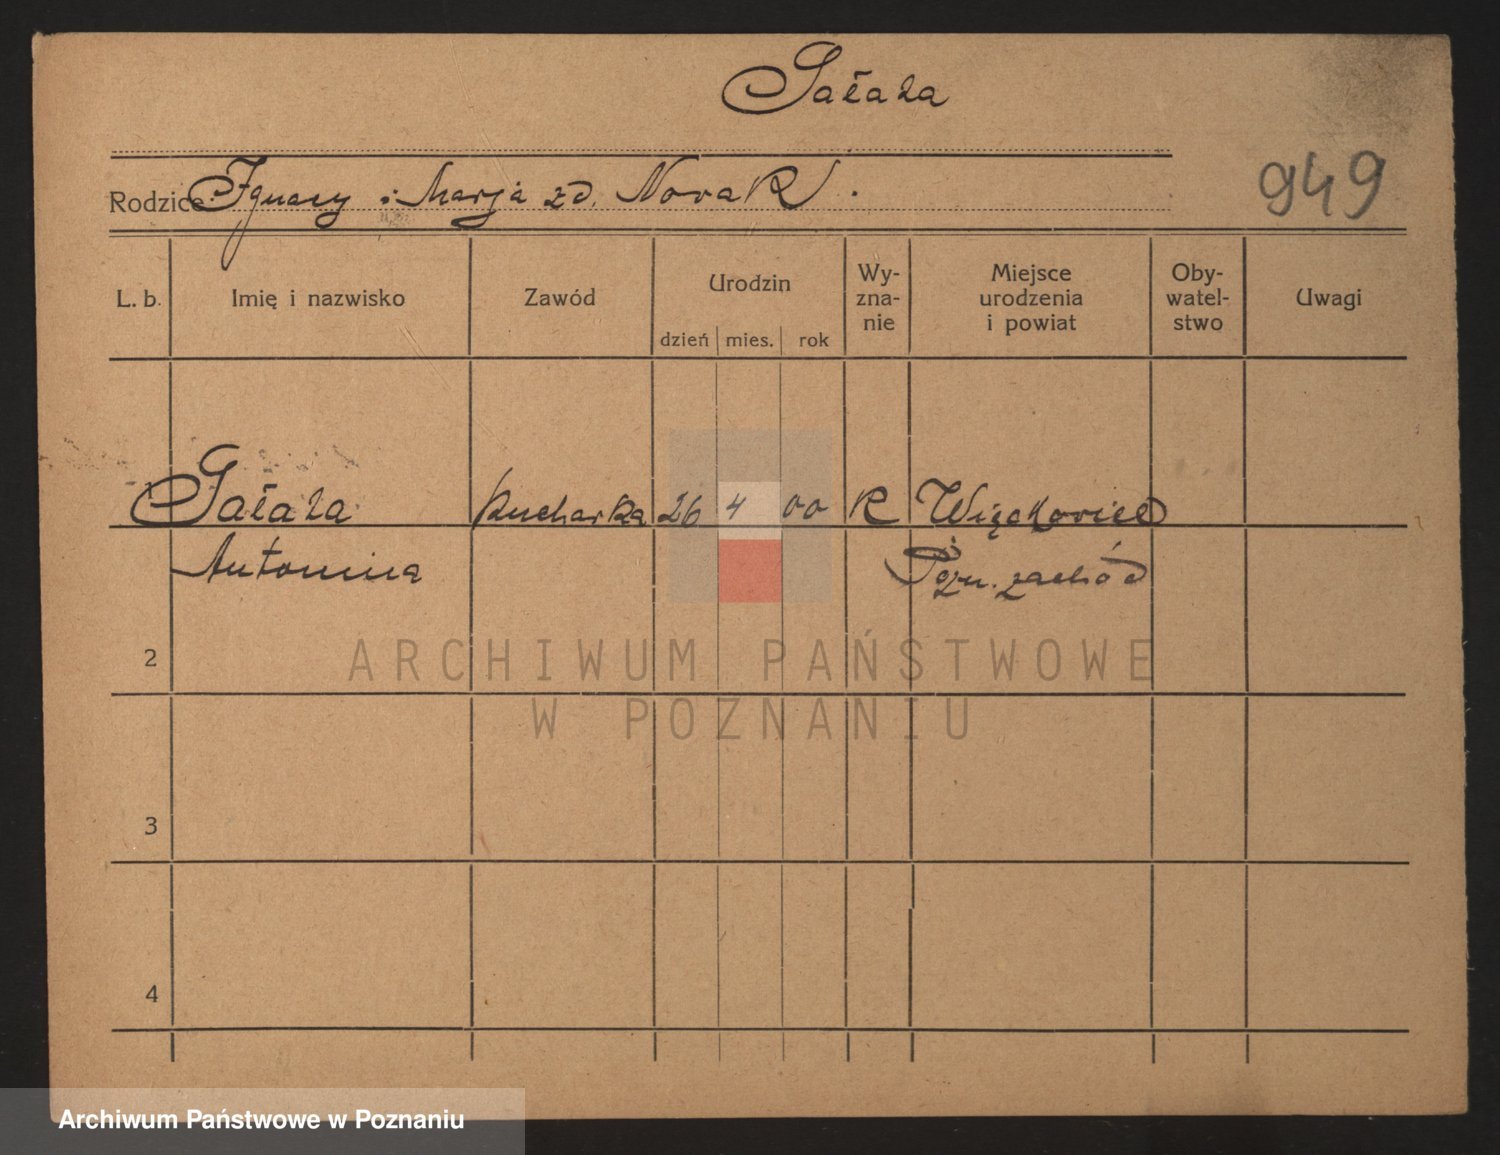 Sałata
949
Rodzice: Ignacy i Marja zd. Novak.
L. b. Imię i nazwisko Zawód Urodzin dzień mies. rok Wy-zna-nie Miejsce urodzenia i powiat Oby-watel-stwo Uwagi
1 Sałata Kucharka 26 4 00 R Więckowice
Antonina Pozn. zachód
2
ARCHIWUM PAŃSTWOWE
W POZNANIU
3
4
Archiwum Państwowe w Poznaniu